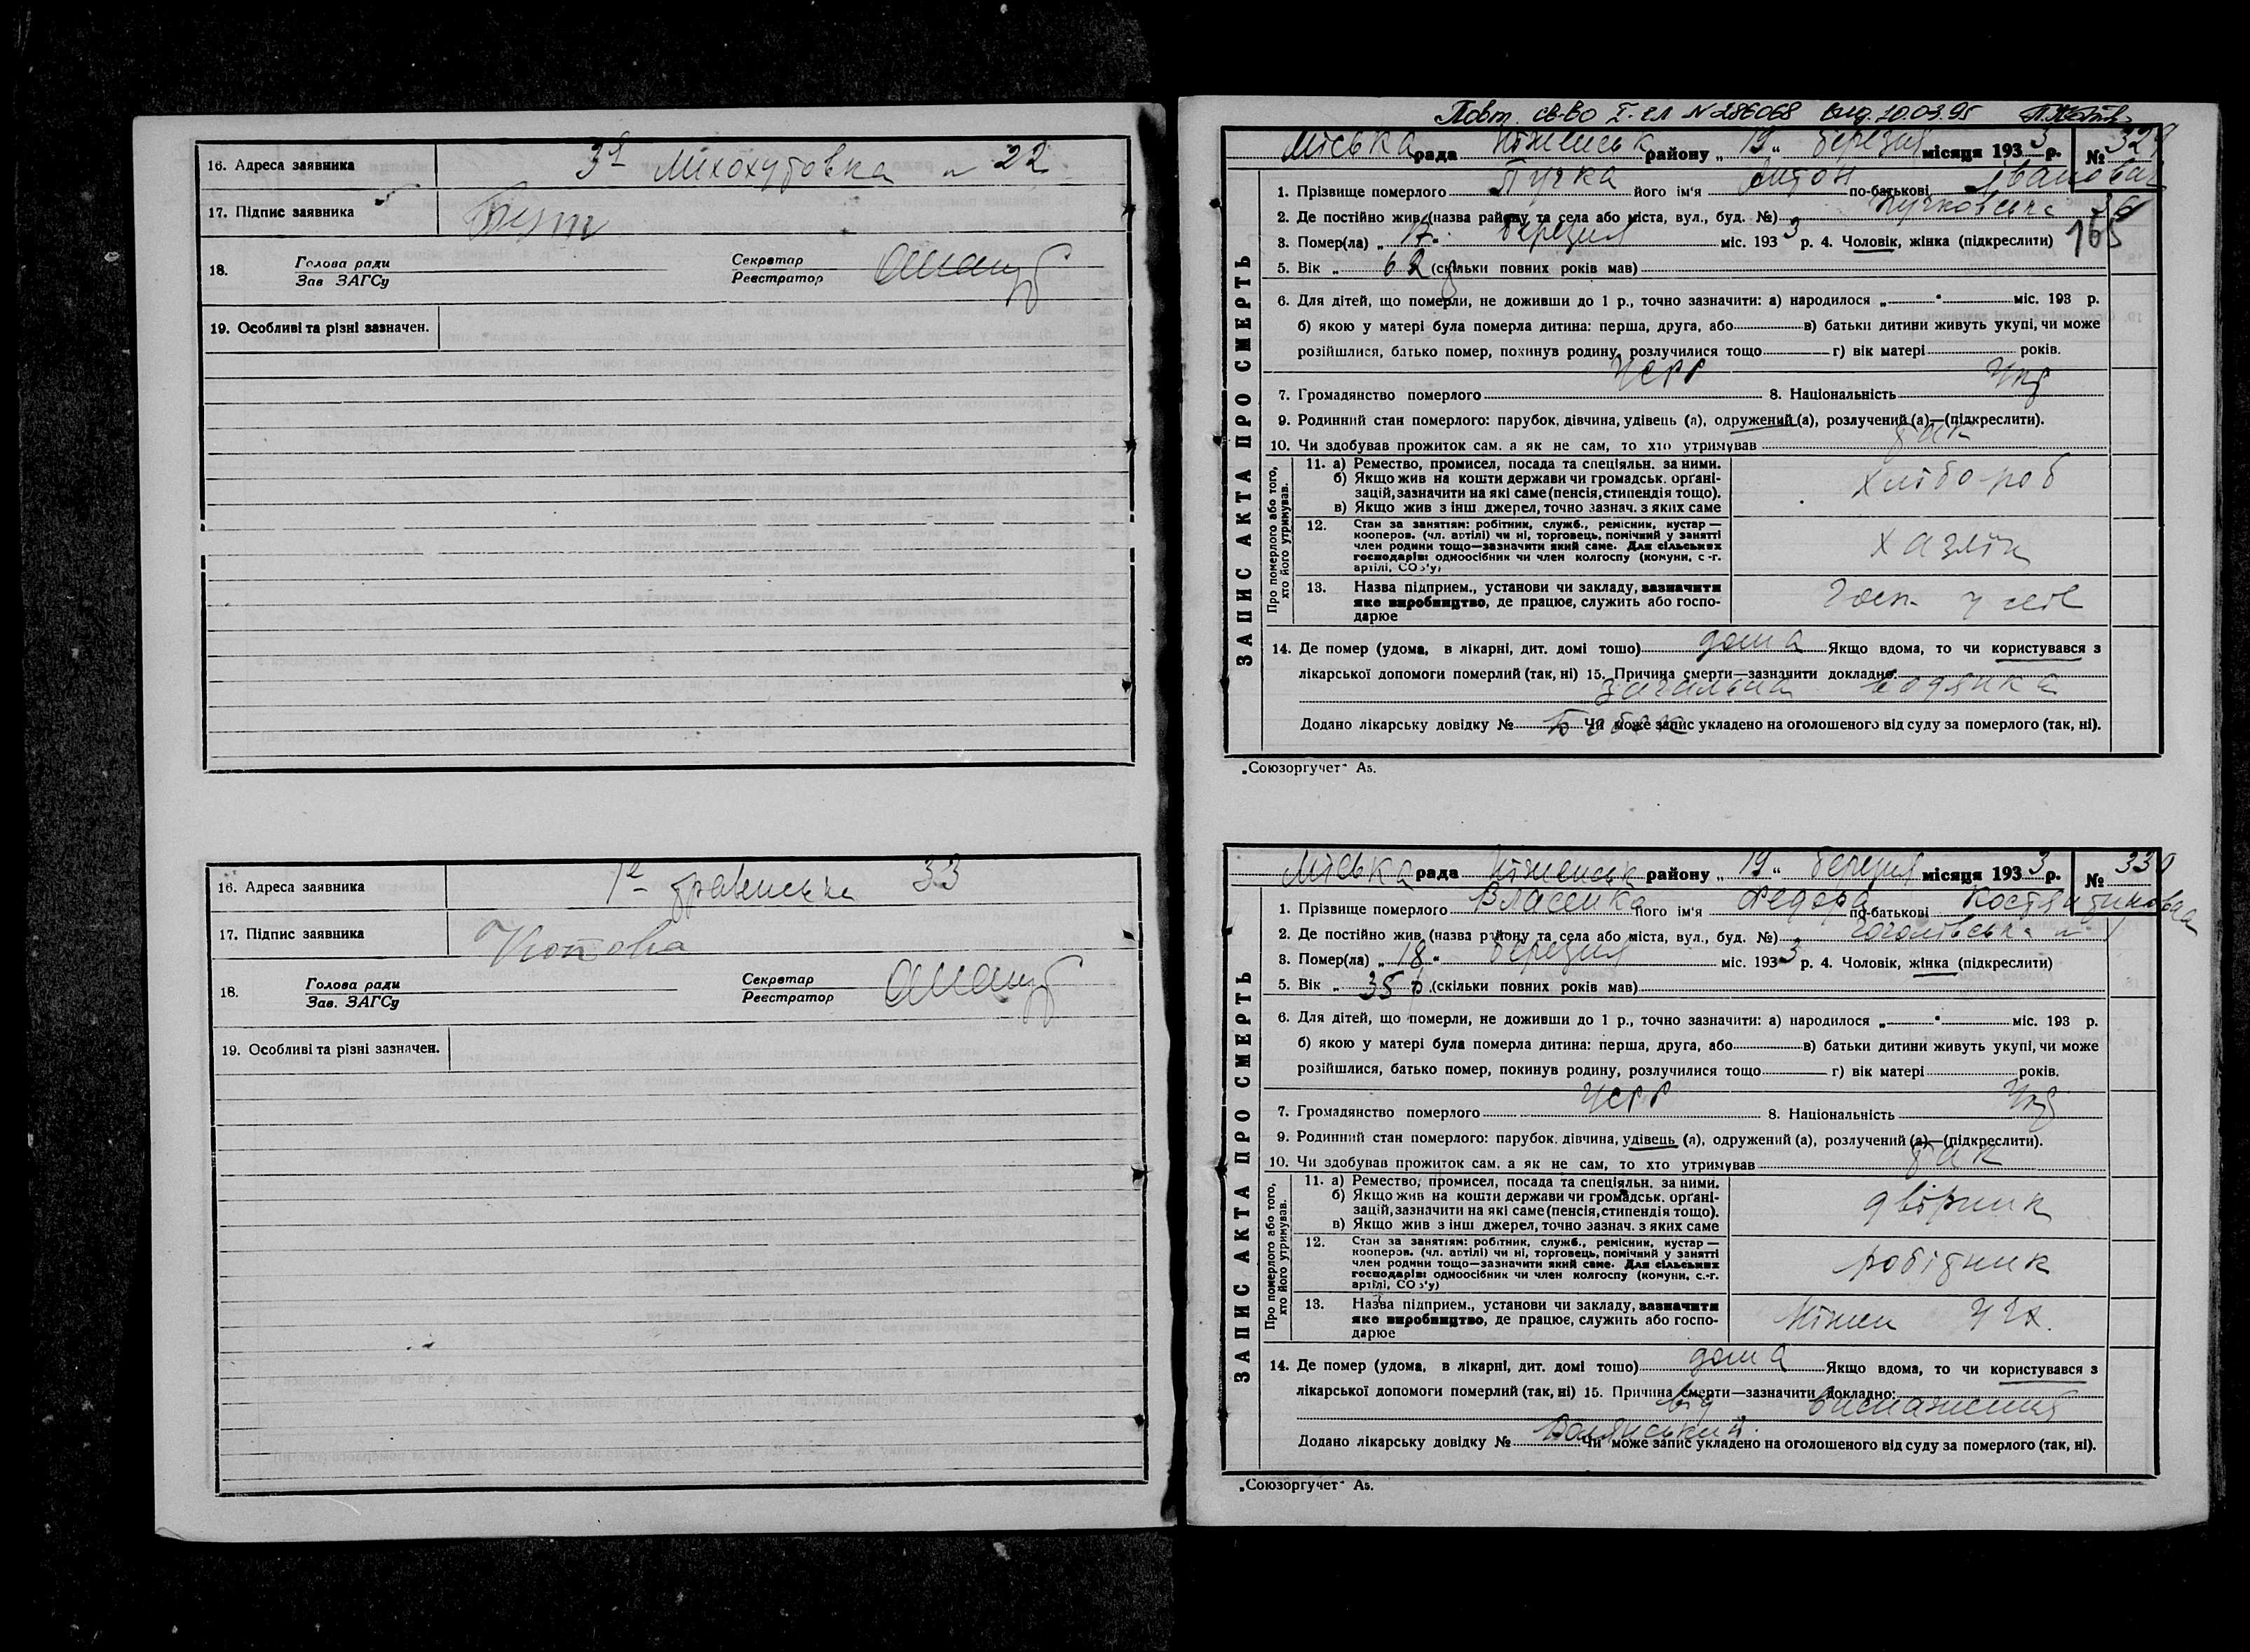 16. Адреса заявника 3я Лихохутовка № 22
17. Підпис заявника
18. Голова ради
Зав ЗАГСу
Секретар
Реєстратор
19. Особливі та різні зазначен.
16. Адреса заявника 33
17. Підпис заявника
18. Голова ради
Зав. ЗАГСу
Секретар
Реєстратор
19. Особливі та різні зазначен.
Повт. св-во I-ел № 286068 вид. 10.03.95
Міська рада Ніженськ району „ 19 “ березня місяця 1933 р. № 329
ЗАПИС АКТА ПРО СМЕРТЬ
1. Прізвище померлого Пучка його ім'я Антон по-батькові Іванович
2. Де постійно жив (назва району та села або міста, вул., буд. №) Пучковська
165
3. Помер(ла) „ 17 “ березня міс. 1933 р. 4. Чоловік, жінка (підкреслити)
5. Вік „ 62 (скільки повних років мав)
6. Для дітей, що померли, не доживши до 1 р., точно зазначити: а) народилося „ “ міс. 193 р.
б) якою у матері була померла дитина: перша, друга, або в) батьки дитини живуть укупі, чи може
розійшлися, батько помер, покинув родину, розлучилися тощо г) вік матері років.
7. Громадянство померлого УСРР 8. Національність Укр
9. Родинний стан померлого: парубок, дівчина, удівець (а), одружений (а), розлучений (а)—(підкреслити).
10. Чи здобував прожиток сам, а як не сам, то хто утримував так
Про померлого або того, хто його утримував.
11. а) Ремество, промисел, посада та спеціяльн. за ними.
б) Якщо жив на кошти держави чи громадськ. орґані-
зацій, зазначити на які саме (пенсія, стипендія тощо).
в) Якщо жив з інш джерел, точно зазнач. з яких саме
хлібороб
12. Стан за заняттям: робітник, служб., ремісник, кустар —
кооперов. (чл. артілі) чи ні, торговець, помічний у занятті
член родини тощо—зазначити який саме. Для сільських
господарів: одноосібник чи член колгоспу (комуни, с.-г.
артілі, СОЗ'у)
хазяін
13. Назва підприєм., установи чи закладу, зазначити
яке виробництво, де працює, служить або госпо-
дарює
Госп. у селі
14. Де помер (удома, в лікарні, дит. домі тощо) дома Якщо вдома, то чи користувався з
лікарської допомоги померлий (так, ні) 15. Причина смерти—зазначити докладно:
загальна водянка
Додано лікарську довідку № Чи може запис укладено на оголошеного від суду за померлого (так, ні).
„Союзоргучет“ А5.
Міська рада Ніженськ району „ 19 “ березня місяця 1933 р. № 330
ЗАПИС АКТА ПРО СМЕРТЬ
1. Прізвище померлого Власенка його ім'я Федора по-батькові Костянтиновна
2. Де постійно жив (назва району та села або міста, вул., буд. №) Гоголівська
3. Помер(ла) „ 18 “ березня міс. 1933 р. 4. Чоловік, жінка (підкреслити)
5. Вік „ 35 р. (скільки повних років мав)
6. Для дітей, що померли, не доживши до 1 р., точно зазначити: а) народилося „ “ міс. 193 р.
б) якою у матері була померла дитина: перша, друга, або в) батьки дитини живуть укупі, чи може
розійшлися, батько помер, покинув родину, розлучилися тощо г) вік матері років.
7. Громадянство померлого УСРР 8. Національність Укр
9. Родинний стан померлого: парубок, дівчина, удівець (а), одружений (а), розлучений (а)—(підкреслити).
10. Чи здобував прожиток сам, а як не сам, то хто утримував так
Про померлого або того, хто його утримував.
11. а) Ремество, промисел, посада та спеціяльн. за ними.
б) Якщо жив на кошти держави чи громадськ. орґані-
зацій, зазначити на які саме (пенсія, стипендія тощо).
в) Якщо жив з інш джерел, точно зазнач. з яких саме
двірник
12. Стан за заняттям: робітник, служб., ремісник, кустар —
кооперов. (чл. артілі) чи ні, торговець, помічний у занятті
член родини тощо—зазначити який саме. Для сільських
господарів: одноосібник чи член колгоспу (комуни, с.-г.
артілі, СОЗ'у)
робітник
13. Назва підприєм., установи чи закладу, зазначити
яке виробництво, де працює, служить або госпо-
дарює
Ніжен
14. Де помер (удома, в лікарні, дит. домі тощо) дома Якщо вдома, то чи користувався з
лікарської допомоги померлий (так, ні) 15. Причина смерти—зазначити докладно:
від виснаження
Додано лікарську довідку № Волянський. Чи може запис укладено на оголошеного від суду за померлого (так, ні).
„Союзоргучет“ А5.